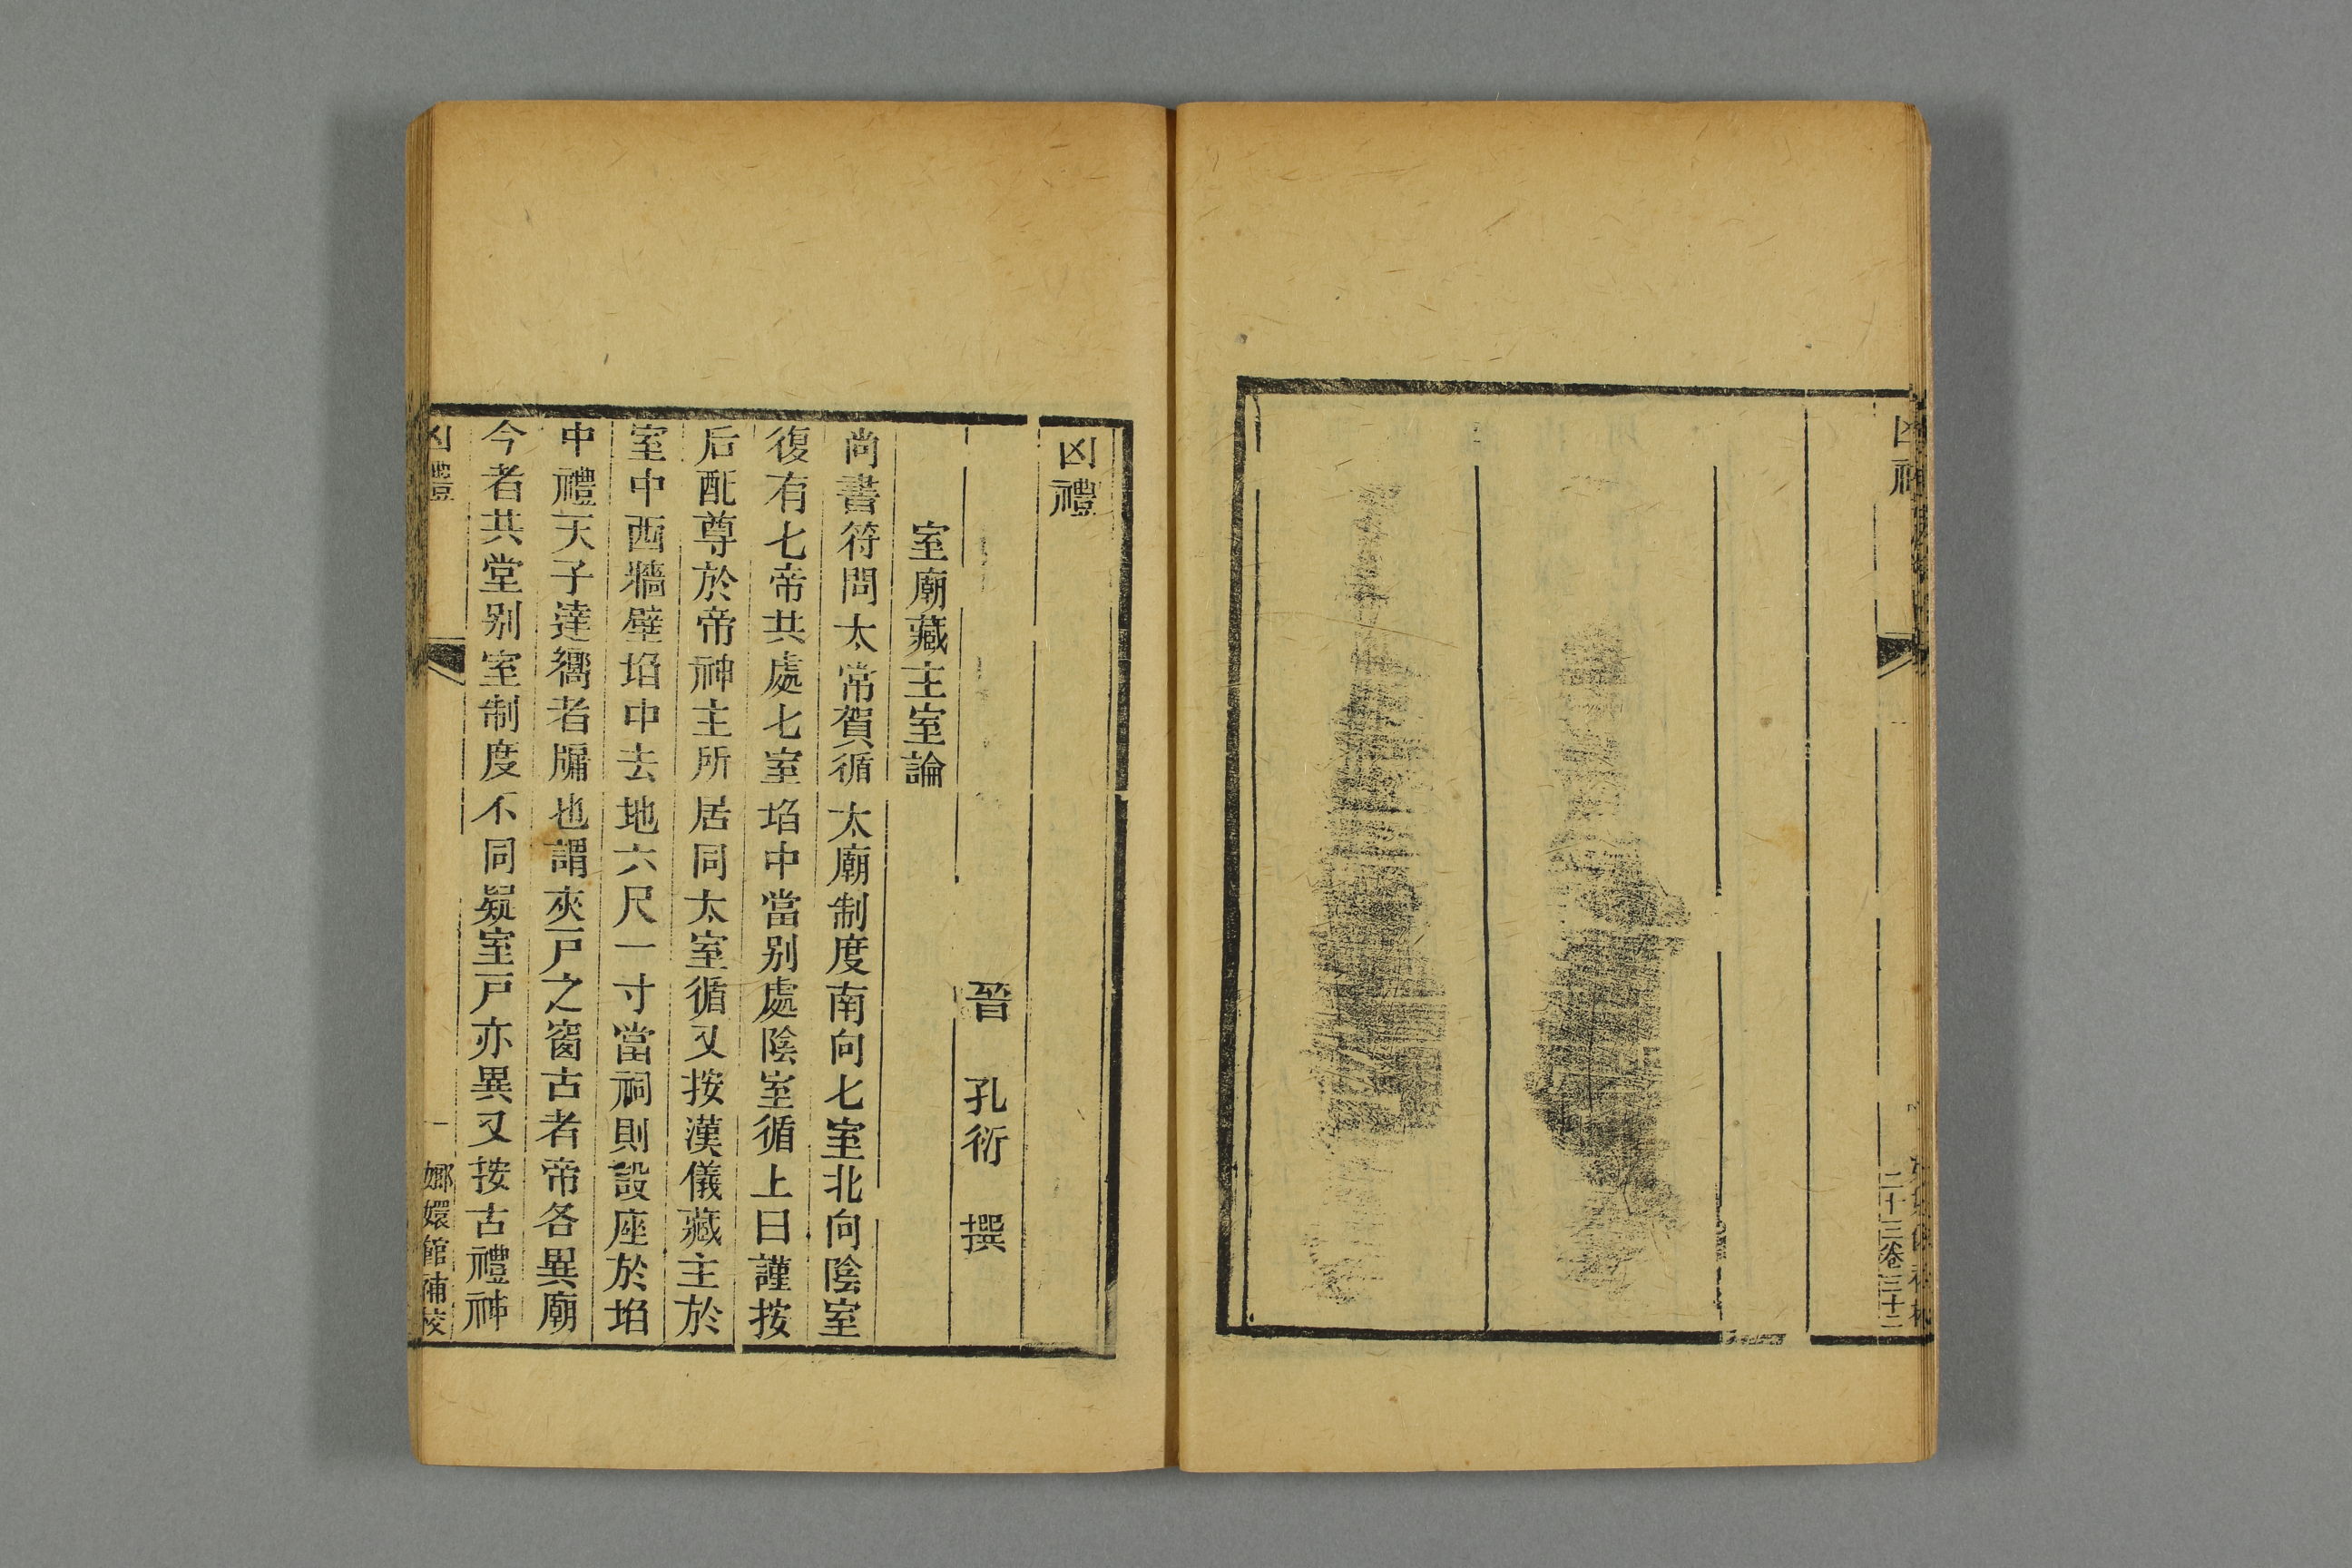 凶禮
二十三卷三十二
凶禮
晉 孔衍 撰
室廟藏主室論
尚書符問太常賀循太廟制度南向七室北向陰室
復有七帝共處七室埳中當别處陰室循上曰謹按
后配尊於帝神主所居同太室循又按漢儀藏主於
室中西牆壁埳中去地六尺一寸當祠則設座於埳
中禮天子達嚮者牖也謂夾戸之窗古者帝各異廟
今者共堂别室制度不同疑室戸亦異又按古禮神
凶禮 一 嫏嬛館補校